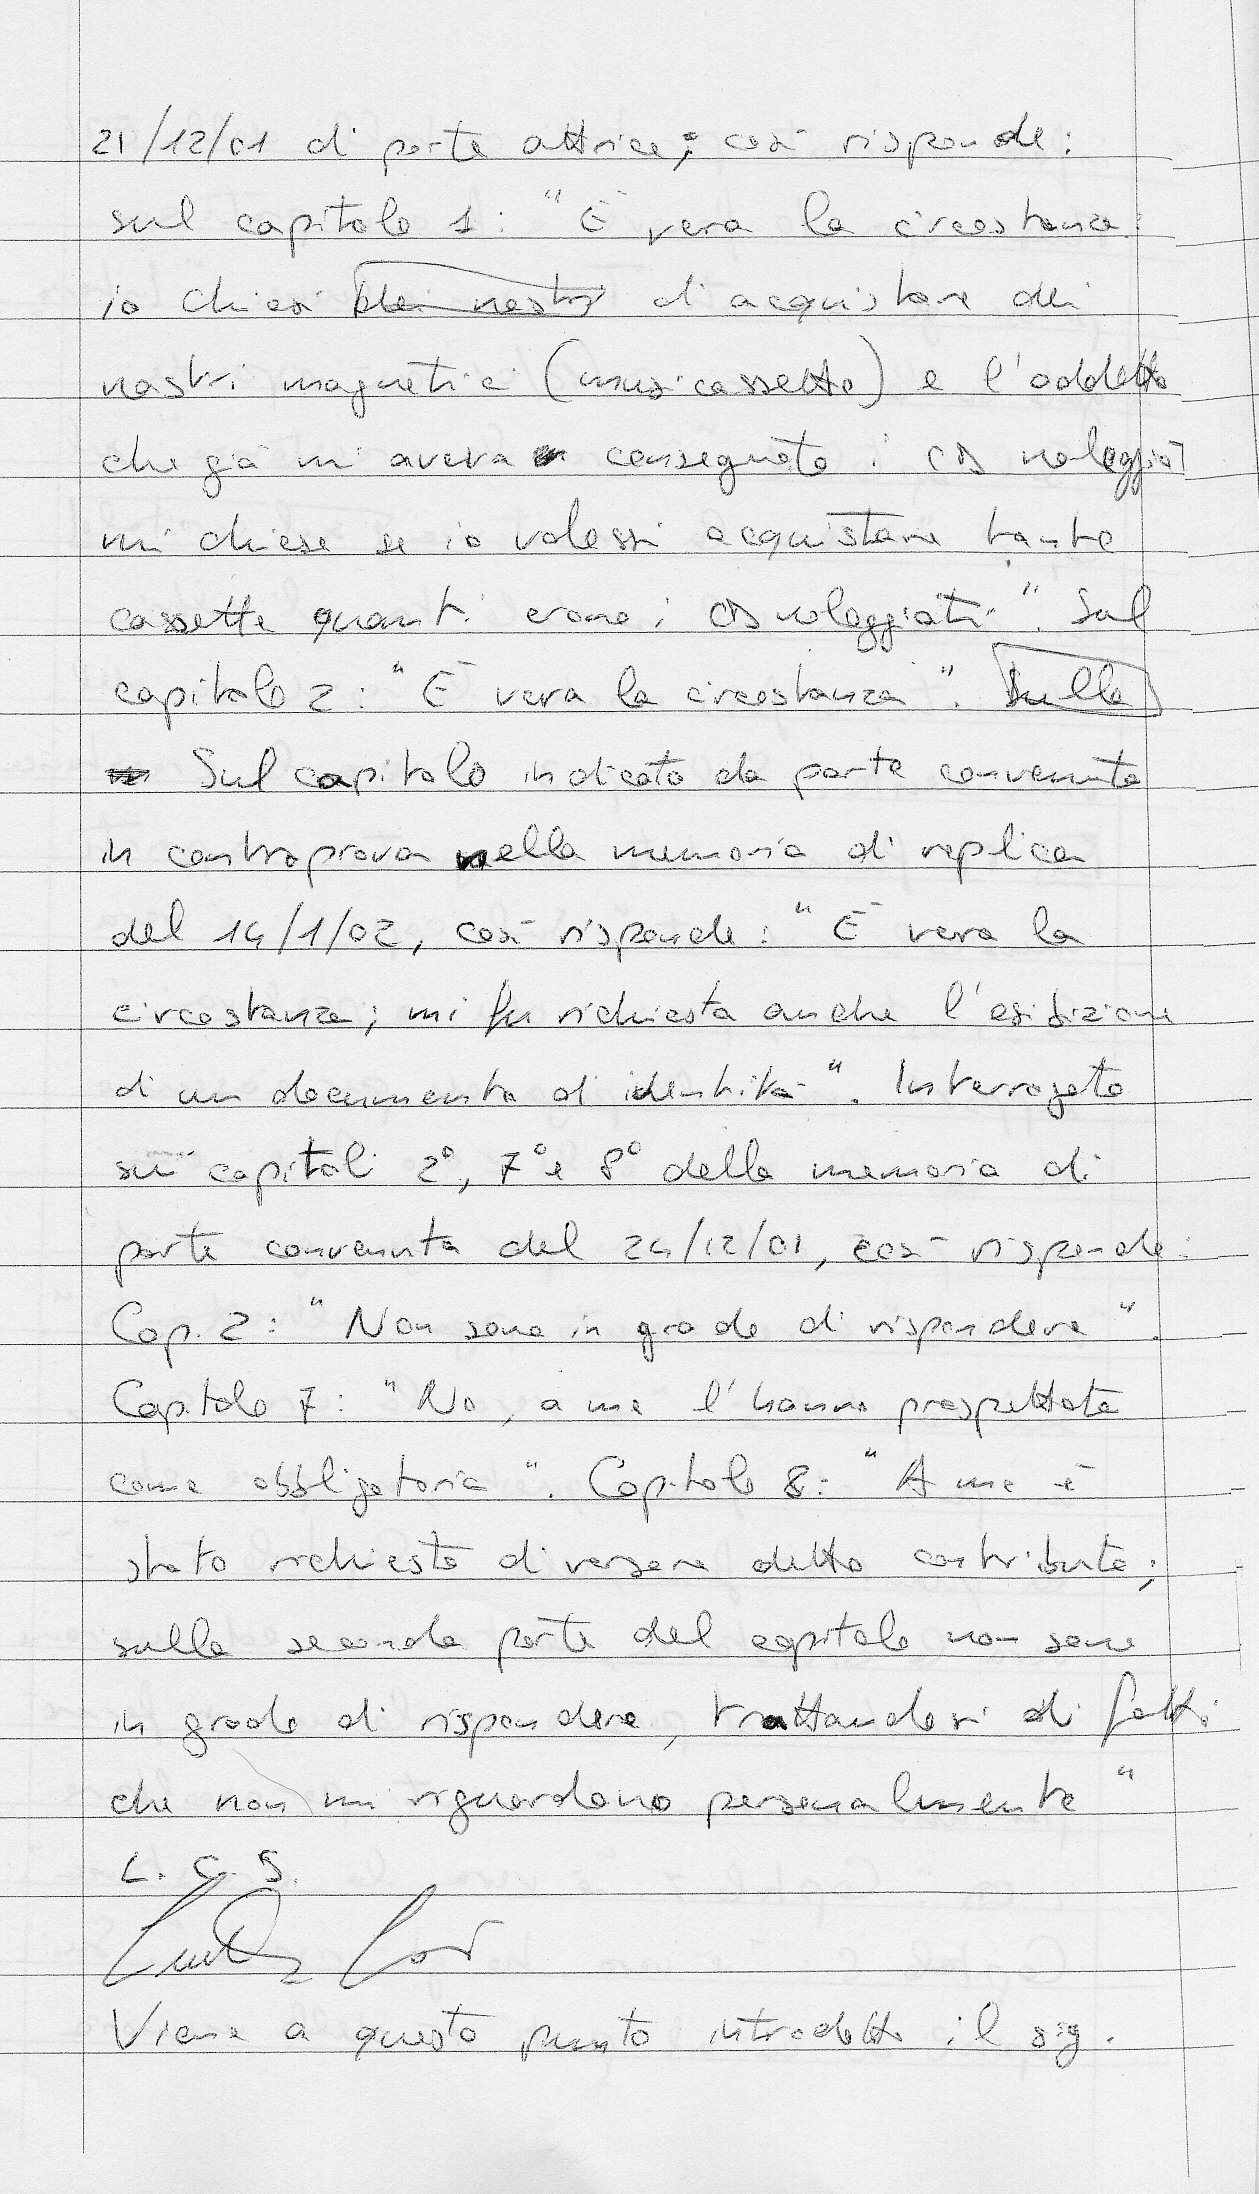 21/12/01 di parte attrice; così risponde:
sul capitolo 1: "È vera la circostanza:
io chiesi dei nastri di acquistare dei
nastri magnetici (musicassette) e l'addetto
che già mi aveva consegnato i CD noleggiati
mi chiese se io volessi acquistare tante
cassette quanti erano i CD noleggiati". Sul
capitolo 2: "È vera la circostanza". Sulla
Sul capitolo indicato da parte convenuta
in controprova nella memoria di replica
del 14/1/02, così risponde: "È vera la
circostanza; mi fu richiesta anche l'esibizione
di un documento di identità". Interrogato
sui capitoli 2°, 7° e 8° della memoria di
parte convenuta del 24/12/01, così risponde:
Cap. 2: "Non sono in grado di rispondere".
Capitolo 7: "No, a me l'hanno prospettata
come obbligatoria". Capitolo 8: "A me è
stato richiesto di versare detto contributo;
sulla seconda parte del capitolo non sono
in grado di rispondere, trattandosi di fatti
che non mi riguardano personalmente"
L. C. S.
Viene a questo punto introdotto il sig.